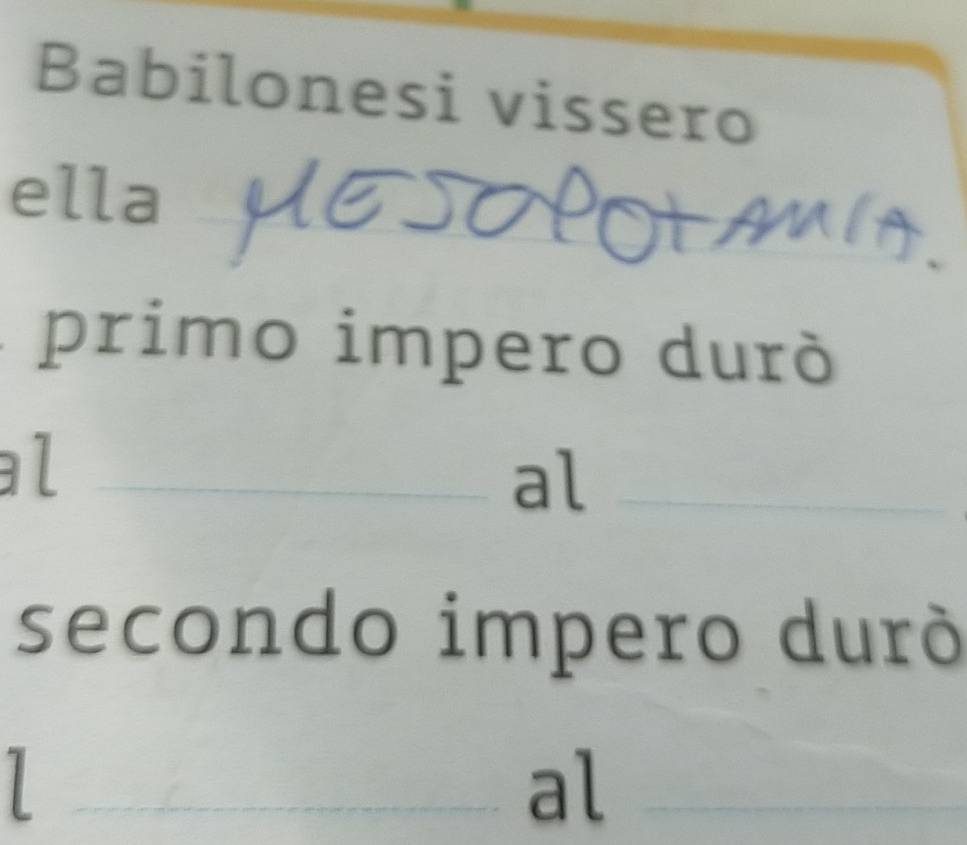 Babilonesi vissero
ella MESOPOTAMIA.
primo impero durò
al al
secondo impero durò
l al